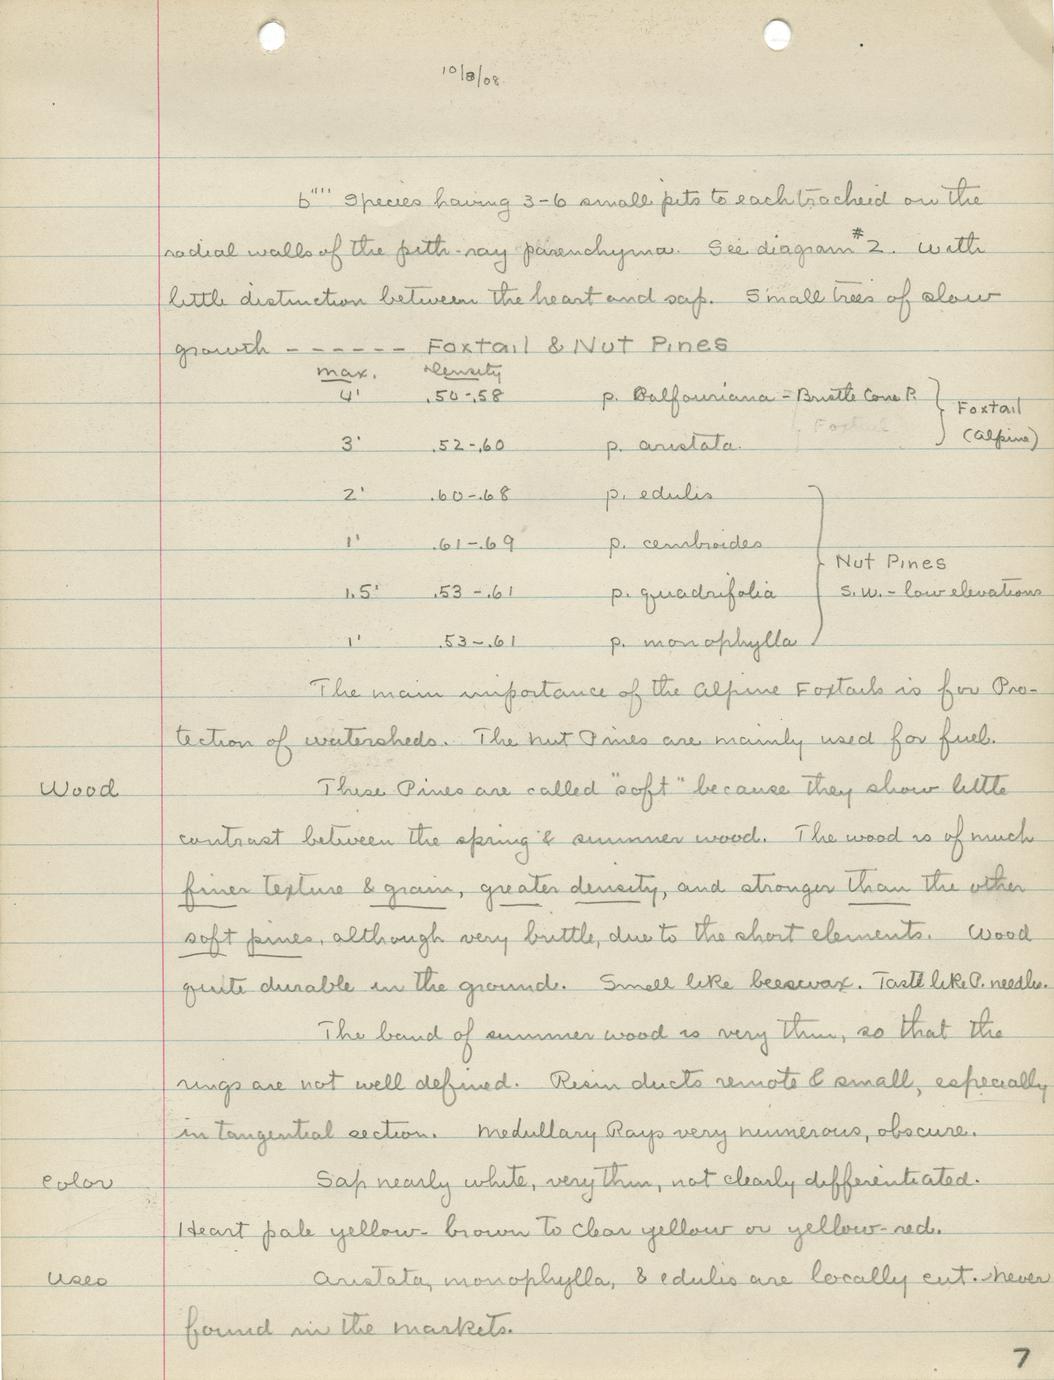 10/8/08
b'''' Species having 3-6 small pits to each tracheid on the
radial walls of the pith-ray parenchyma. See diagram #2. With
little distinction between the heart and sap. Small trees of slow
growth ------ Foxtail & Nut Pines
max. Density
4' .50-.58 p. Balfouriana = Bristle Cone P. Foxtail
Foxtail
3' .52-.60 p. aristata. (Alpine)
2' .60-.68 p. edulis
1' .61-.69 p. cembroides
Nut Pines
1.5' .53-.61 p. quadrifolia S.W. - low elevations
1' .53-.61 p. monophylla
The main importance of the Alpine Foxtails is for Pro-
tection of watersheds. The Nut Pines are mainly used for fuel.
Wood These Pines are called "soft" because they show little
contrast between the spring & summer wood. The wood is of much
finer texture & grain, greater density, and stronger than the other
soft pines, although very brittle, due to the short elements. Wood
quite durable in the ground. Smell like beeswax. Taste like P. needles.
The band of summer wood is very thin, so that the
rings are not well defined. Resin ducts remote & small, especially
in tangential section. Medullary Rays very numerous, obscure.
Color Sap nearly white, very thin, not clearly differentiated.
Heart pale yellow-brown to clear yellow or yellow-red.
Uses Aristata, monophylla, & edulis are locally cut. Never
found in the markets.
7